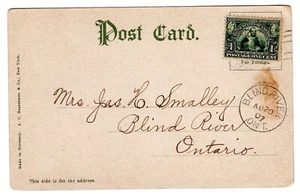 Post Card.
1
POSTAGE ONE CENT
Par Foreign.
Mrs. Jas. H. Smalley
Blind River
Ontario.
BLIND RIVER
AU 20
07
ONT.
Made in Germany. A. C. Bosselman & Co., New York.
This side is for the address.